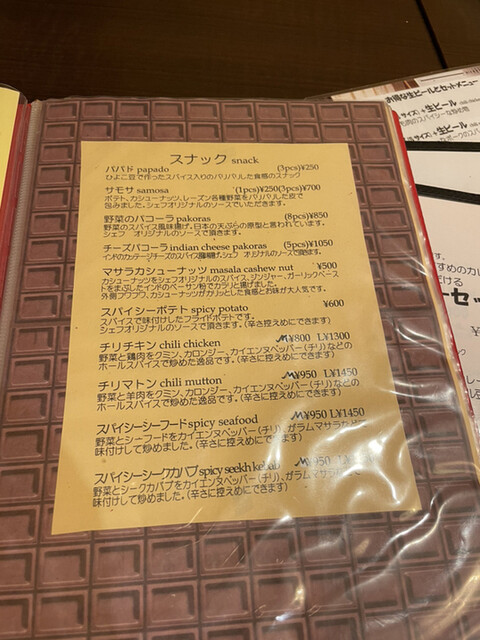 スナック snack
パパド papado (3pcs)¥250
ひよこ豆で作ったスパイス入りのパリパリした食感のスナック
サモサ samosa (1pc)¥250(3pcs)¥700
ポテト、カシューナッツ、レーズン各種野菜をパリパリした皮で
包みました。シェフオリジナルのソースでいただきます。
野菜のパコーラ pakoras (8pcs)¥850
野菜のスパイス風味揚げ。日本の天ぷらの原型と言われています。
シェフ オリジナルのソースで頂きます。
チーズパコーラ indian cheese pakoras (5pcs)¥1050
インドのカッテージチーズのスパイス風味揚げ。シェフ オリジナルのソースで頂きます。
マサラカシューナッツ masala cashew nut ¥500
カシューナッツをシェフオリジナルのスパイス、ジンジャー、ガーリックペースト
をまぶしたインドのベーサン粉でカラリと揚げました。
外側フワフワ、カシューナッツがカリッとした食感とお味が大人気です。
スパイシーポテト spicy potato ¥600
スパイスで味付けしたフライドポテトです。
シェフオリジナルのソースで頂きます。(辛さ控えめにできます)
チリチキン chili chicken M¥800 L¥1300
野菜と鶏肉をクミン、カロンジー、カイエンヌペッパー(チリ)などの
ホールスパイスで炒めた逸品です。(辛さに控えめにできます)
チリマトン chili mutton M¥950 L¥1450
野菜と羊肉をクミン、カロンジー、カイエンヌペッパー(チリ)などの
ホールスパイスで炒めた逸品です。(辛さに控えめにできます)
スパイシーシーフード spicy seafood M¥950 L¥1450
野菜とシーフードをカイエンヌペッパー(チリ)、ガラムマサラなどで
味付けして炒めました。(辛さに控えめにできます)
スパイシーシークカバブ spicy seekh kebab M¥950
野菜とシークカバブをカイエンヌペッパー(チリ)、ガラムマサラなどで
味付けして炒めました。(辛さに控えめにできます)
お得な生ビールとセットメニュー
サイズ)+生ビール
サイズ)+生ビール